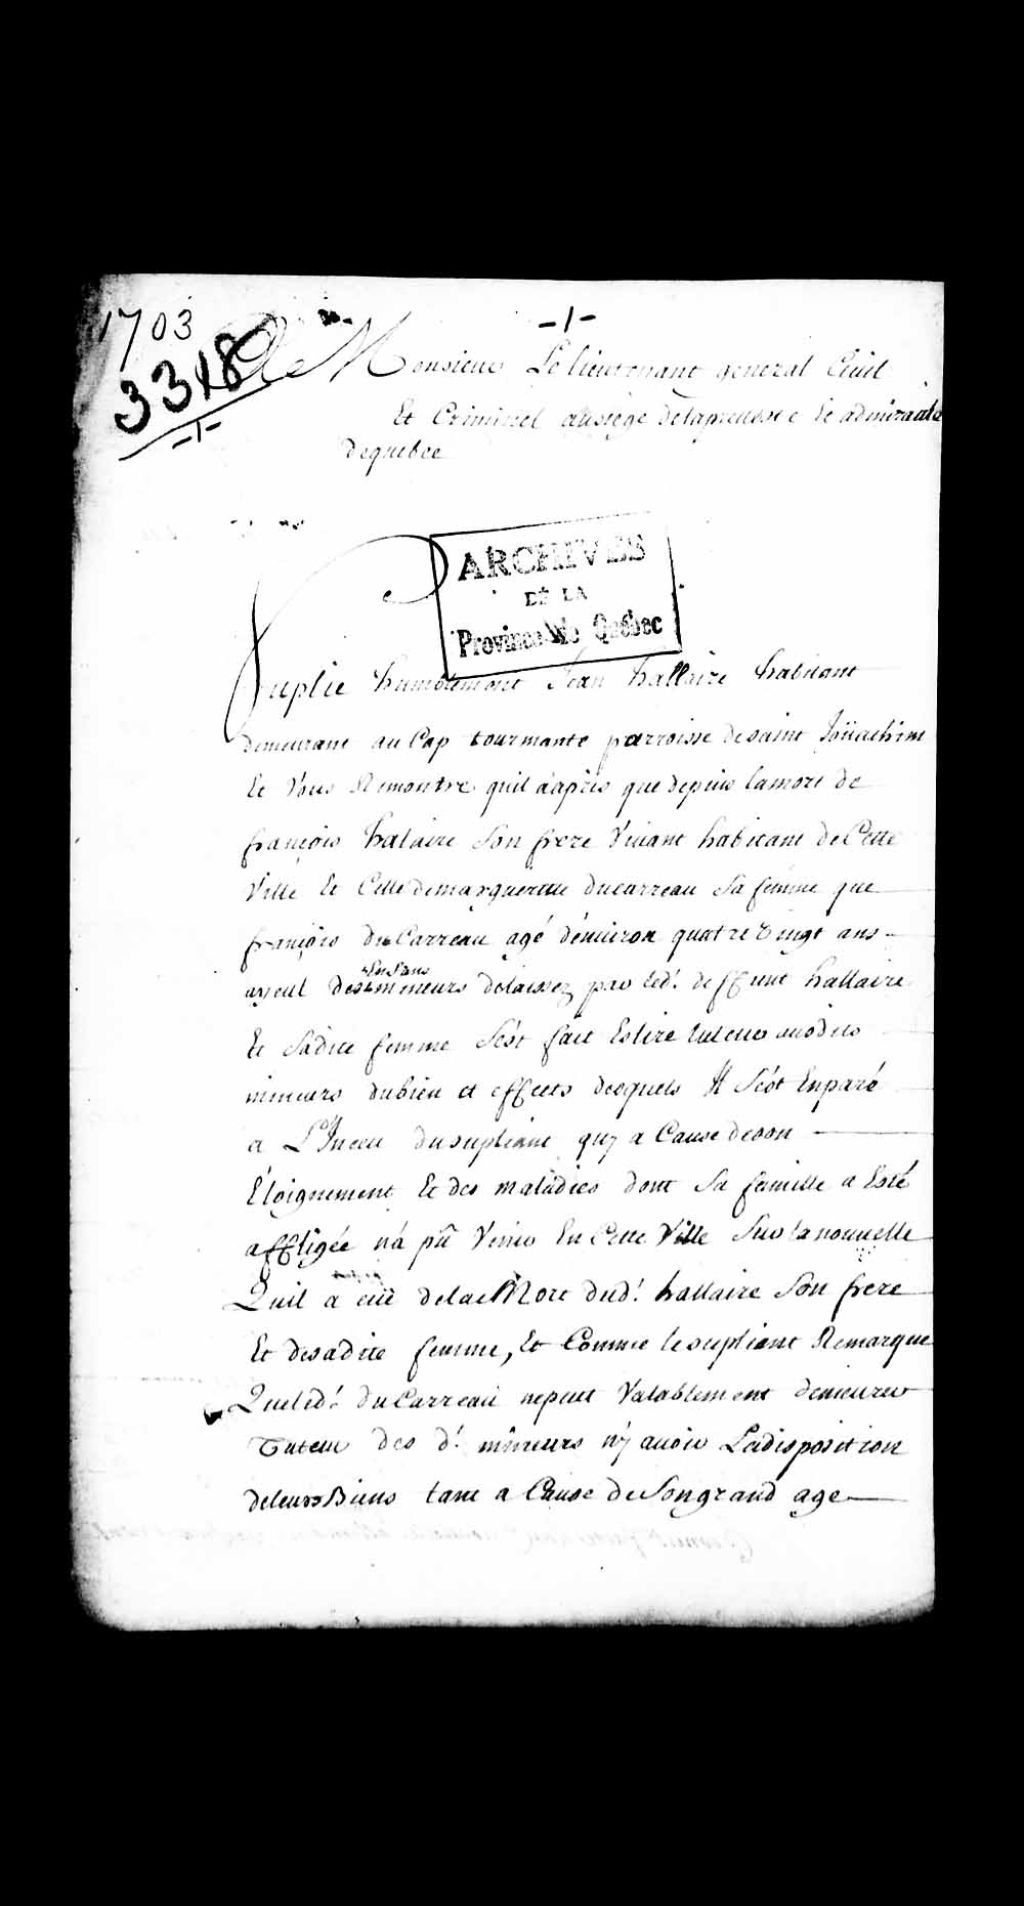 1703
3318
-1-
-1-
A Monsieur Le lieutenant general Civil
Et Criminel ausiége delapreuosté Et admirauté
dequebec
ARCHIVES
DE LA
Province de Québec
Suplie humblement Jean hallaire habitant
demeurant au Cap tourmante parroisse desaint Joüachim
Et Vous Remontre quil aapris que depuis lamort de
françois halaire Son frere Viuant habitant deCette
Ville Et Celle demargueritte ducarreau Sa femme que
françois du Carreau agé d'enuiron quatre Vingt ans
Enfans
ayeul des mineurs delaissez par led.t deffunt hallaire
Et Sadite femme S'est fait Eslire tuteur ausdits
mineurs dubien et effects desquels Il S'est Enparé
a L'Inceu dusupliant quy a Cause deson
Eloignement Et des maladies dont Sa famille a Esté
affligée n'a pû Venir En Cette Ville Sur lanouuelle
Quil a eüe dela Mort dud.t hallaire Son frere
Et desadite femme, Et Comme lesupliant Remarque
Queled.t duCarreau nepeut Valablement demeurer
Tuteur des d.t mineurs ny auoir Ladisposition
deleurs Biens tant a Cause deSongrand age